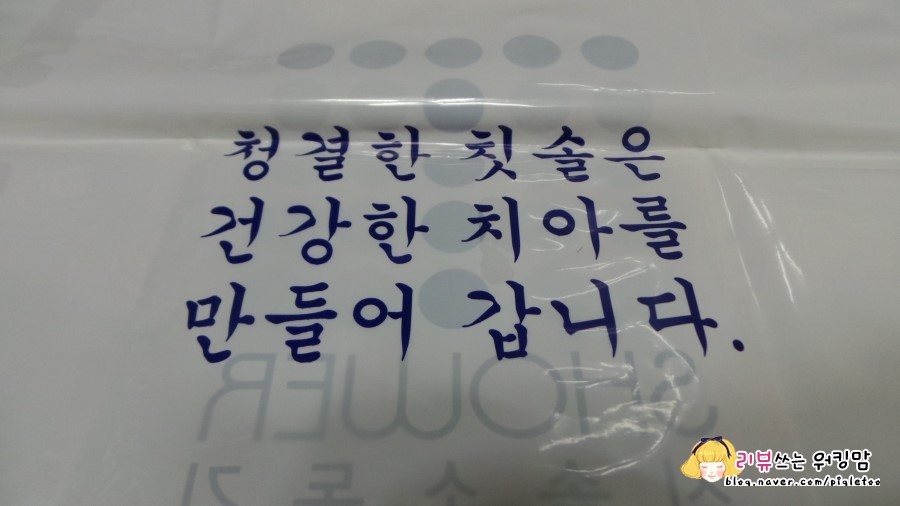 청결한 칫솔은
건강한 치아를
만들어 갑니다.
SHOWER
리뷰쓰는 워킹맘
blog.naver.com/pigletoo